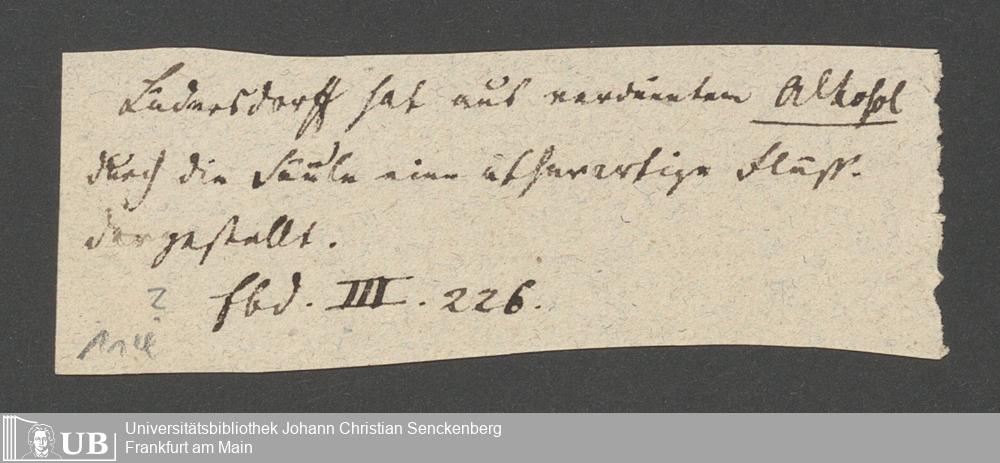 Lüdersdorff hat aus verdünntem Alkohol
durch die Säule eine ätherartige Flüss.
dargestellt.
Ebd. III. 226.
2
UB
Universitätsbibliothek Johann Christian Senckenberg
Frankfurt am Main